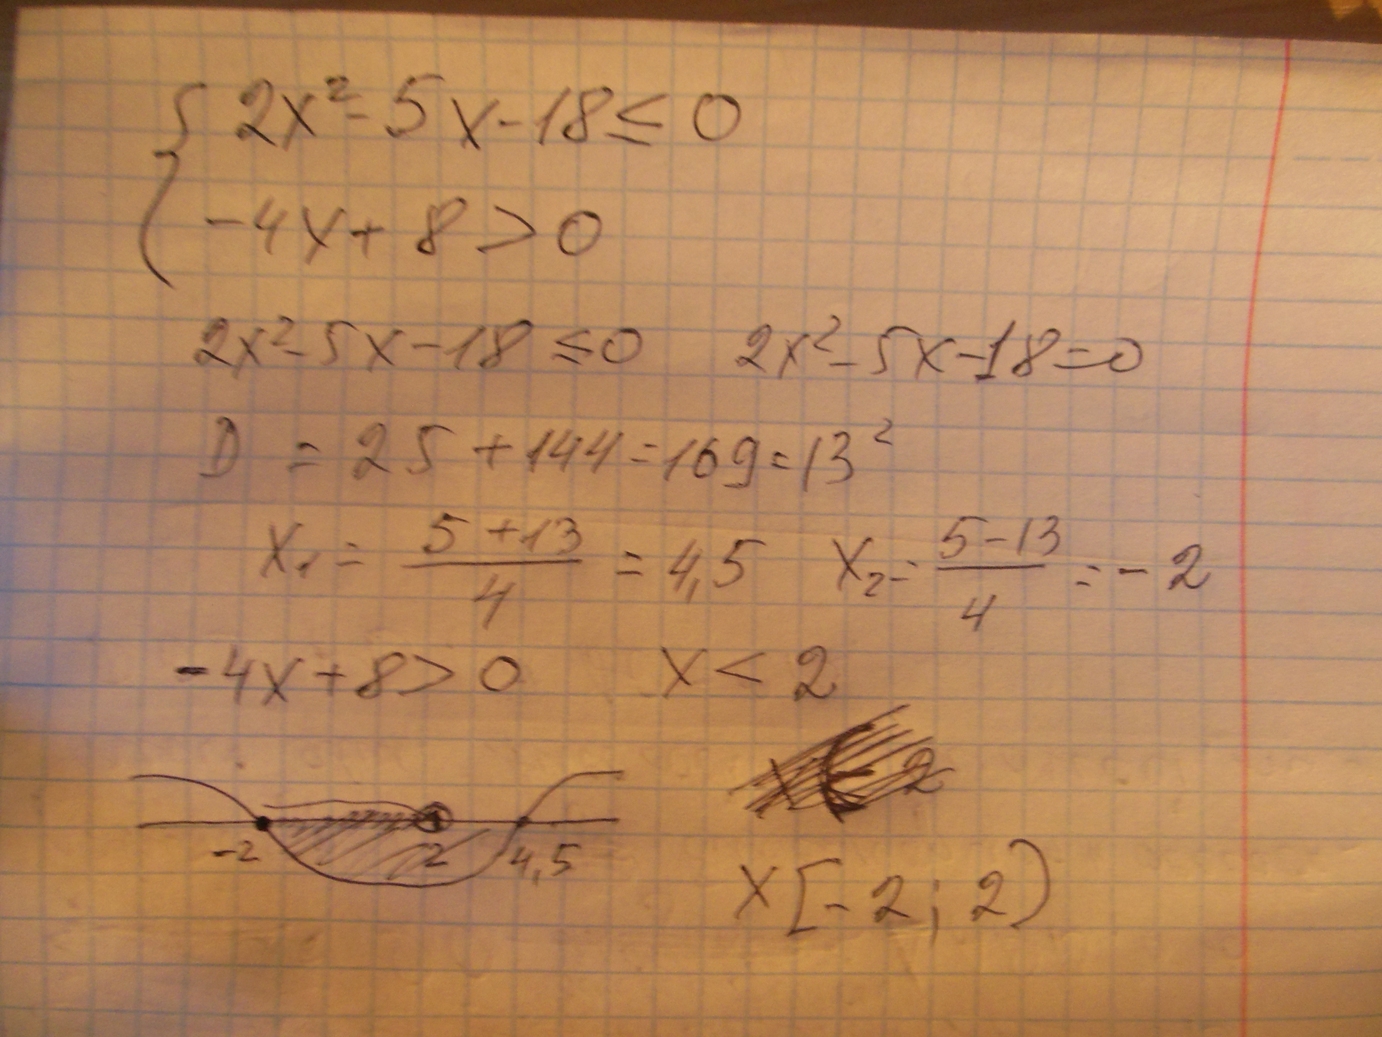 { 2x² - 5x - 18 ≤ 0
-4x + 8 > 0
2x² - 5x - 18 ≤ 0   2x² - 5x - 18 = 0
D = 25 + 144 = 169 = 13²
x₁ = (5 + 13)/4 = 4,5   x₂ = (5 - 13)/4 = -2
-4x + 8 > 0   x < 2
-2   2   4,5
x [-2; 2)